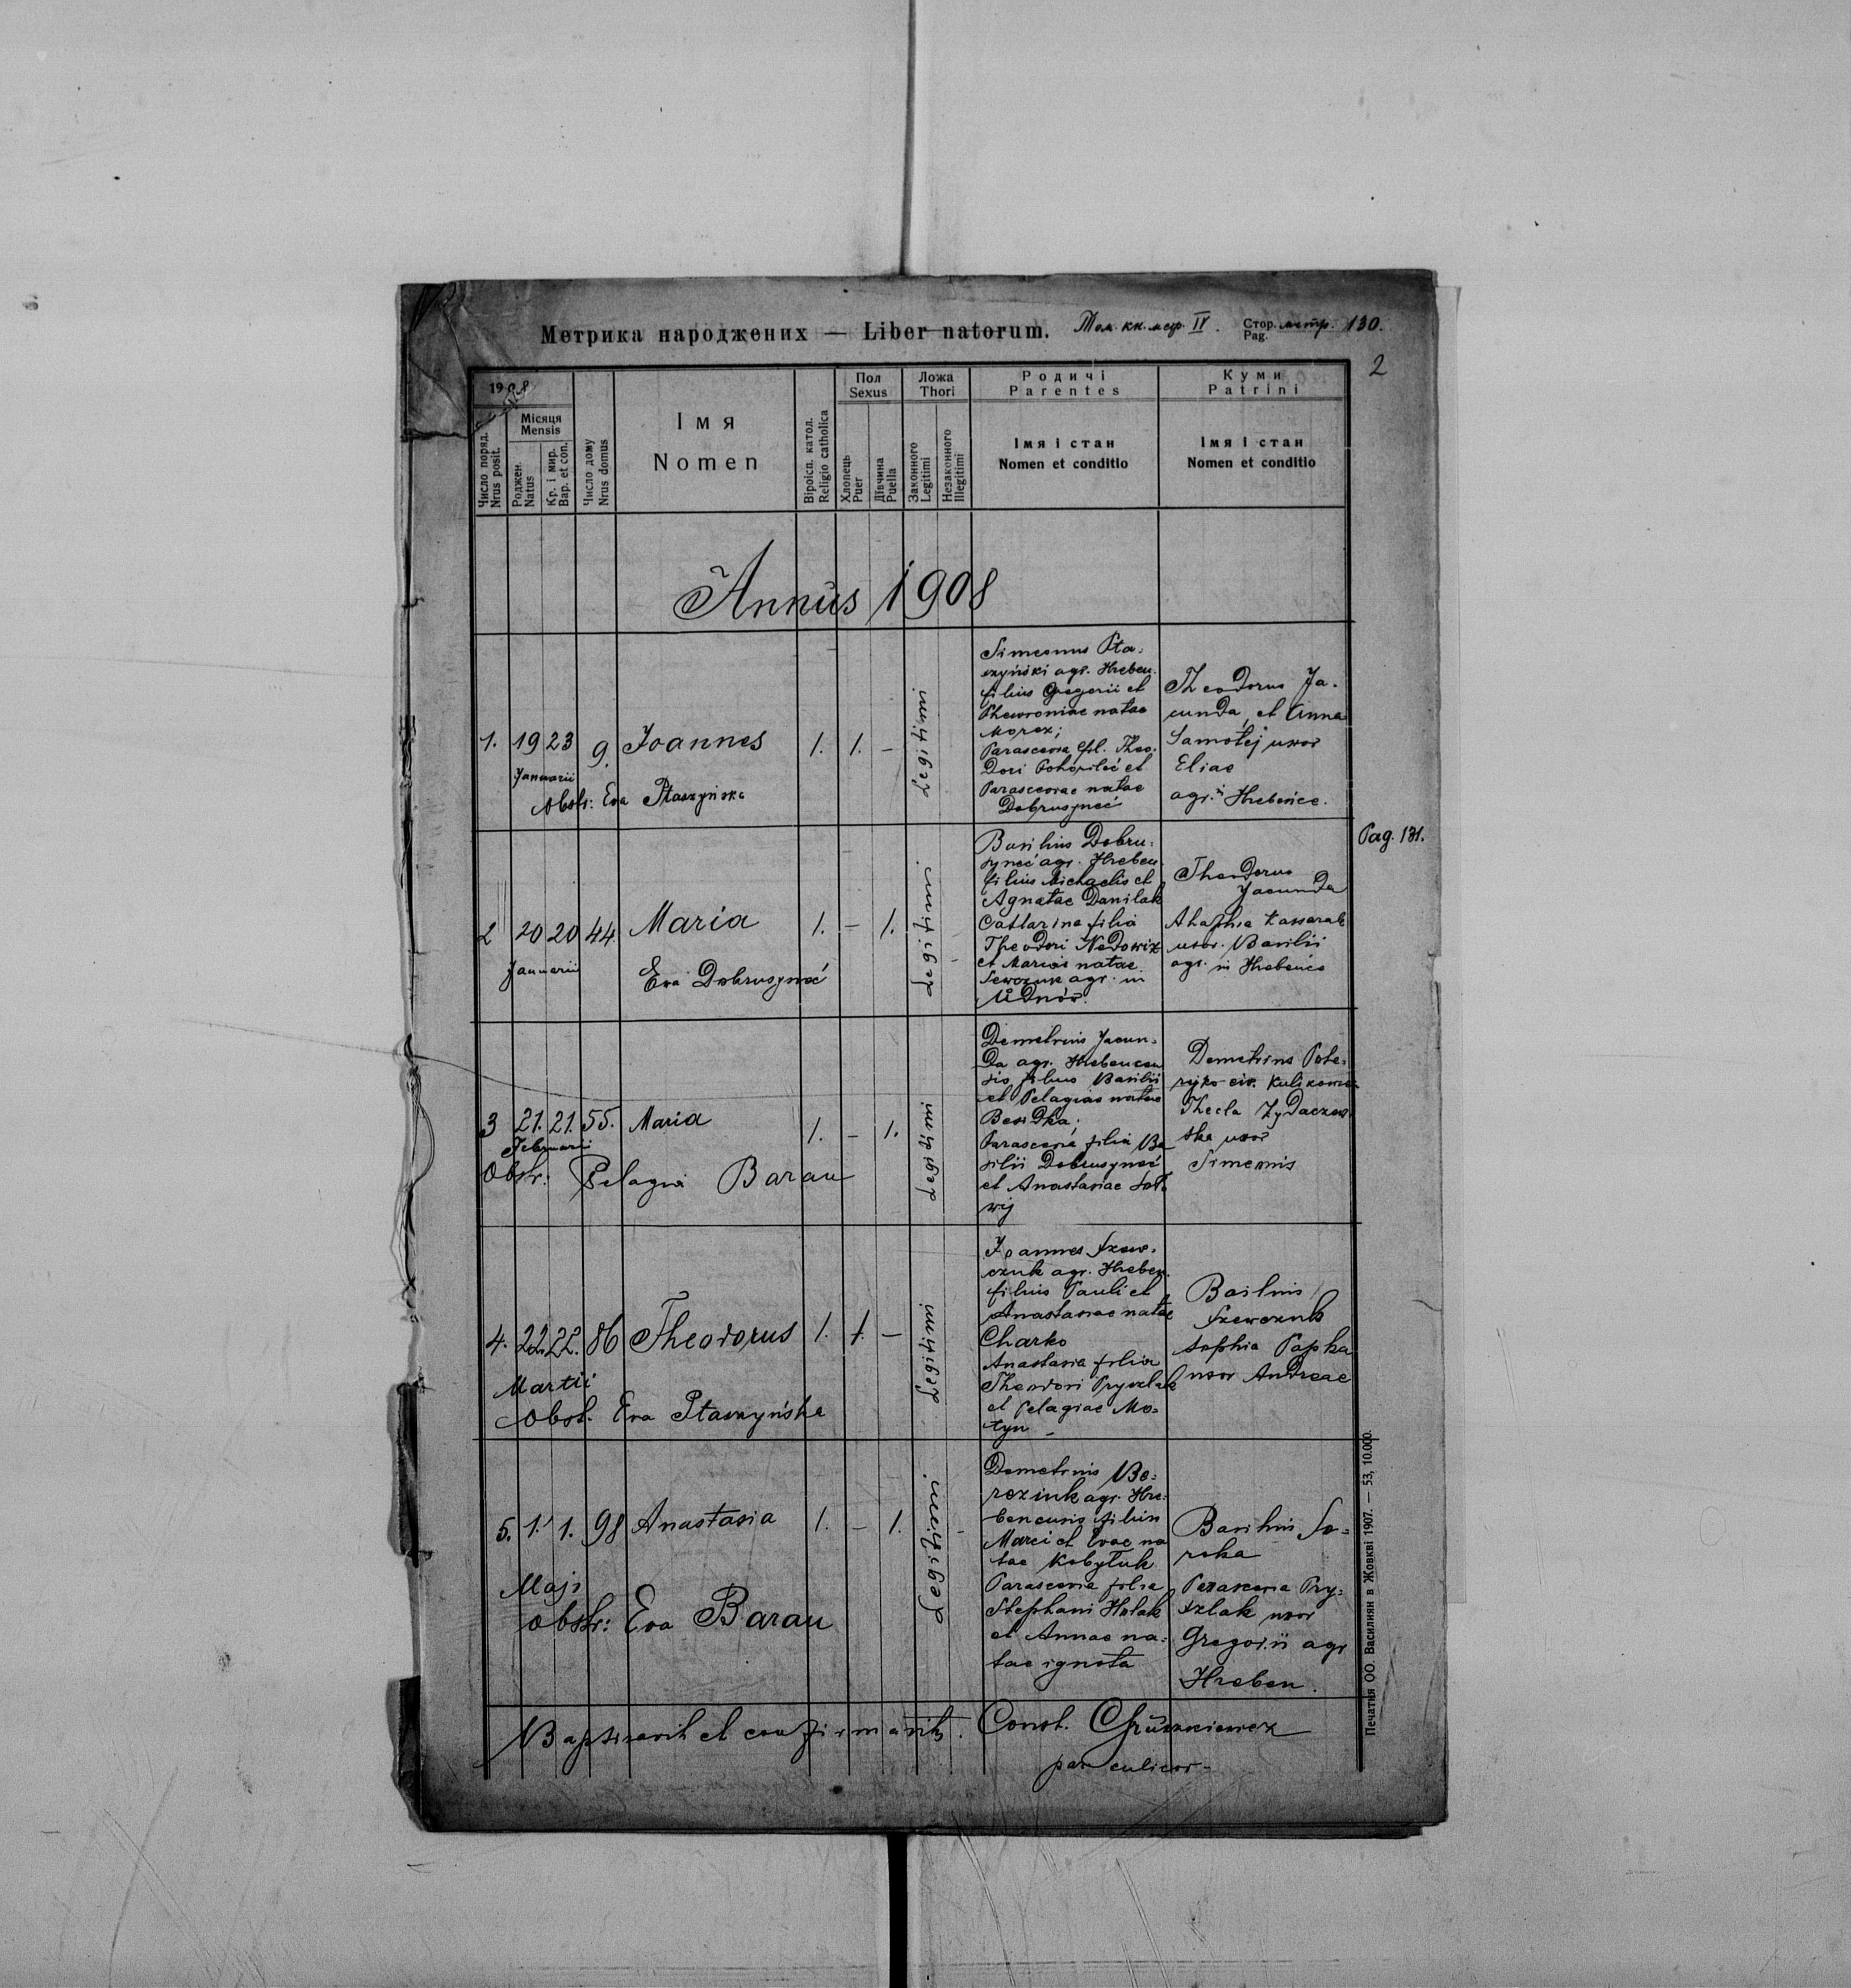 Метрика народжених — Liber natorum. Том. кн. мер. IV. Стор. Pag. метр. 130.
2
1908
Число поряд. Nrus posit.
Місяця Mensis
Роджен. Natus
Кр. і мир. Bap. et con.
Число дому Nrus domus
Імя
Nomen
Віроісп. катол. Religio catholica
Пол Sexus
Хлопець Puer
Дівчина Puella
Ложа Thori
Законного Legitimi
Незаконного Illegitimi
Родичі
Parentes
Імя і стан
Nomen et conditio
Куми
Patrini
Імя і стан
Nomen et conditio
Annus 1908
1. 19 23 9. Joannes 1. 1. – Legitimi
Januarii
Obstr: Eva Ptaszyńska
Simeonus Pta-
szyński agr. Hreben.
filius Gregorii et
Phewroniae natae
Morex;
Parascevia fil. Theo-
dori Pohorileć et
Parasceviae natae
Dobrusyneć
Theodorus Ja-
cunda et Anna
Samołej uxor
Eliae
agr. Hrebeńce.
Pag. 131.
2 20 20 44 Maria 1. – 1. Legitimi
Januarii
Eva Dobrusyneć
Basilius Dobru-
syneć agr. Hreben.
filius Michaelis et
Agnatae Danilak
Catharina filia
Theodori Nedowiz
et Mariae natae
Sewczuk agr. in
Udnów.
Theodorus
Jacunda
Ahaphia
uxor. Basilii
agr. in Hrebeńce
3 21. 21. 55. Maria 1. – 1. Legitimi
Februarii
Obstr: Pelagia Baran
Demetrius Jacun-
da agr. Hrebencen
sis filius Basilii
et Pelagiae natae
Besidka;
Parascevia filia Ba
silii Dobrusyneć
et Anastasiae Soł-
wij
Demetrius Pote-
ryjko civ.
Thecla Zydaczew
ska uxor
Simeonis
4. 22. 22. 86 Theodorus 1. 1. – Legitimi
Martii
Obst. Eva Ptaszyńska
Joannes Szew-
czuk agr. Hreben.
filius Pauli et
Anastasiae natae
Charko
Anastasia filia
Theodori Pryszlak
et Pelagiae Mo-
tyn –
Basilius
Szewczuk
Sophia Papka
uxor Andreae
5. 1. 1. 98 Anastasia 1. – 1. Legitimi
Maji
obstr: Eva Baran
Demetrius Be-
reziuk agr. Hre-
bencensis filius
Marci et Evae na
tae Kobyłuk
Parascevia filia
Stephani Hulak
et Annae na-
tae ignota
Basilius So-
roka
Parascevia Pry-
szlak uxor
Gregorii agr
Hreben.
Baptisavit et confirmavit. Const.
Печатня ОО. Василиян в Жовкві 1907. — 53, 10.000.